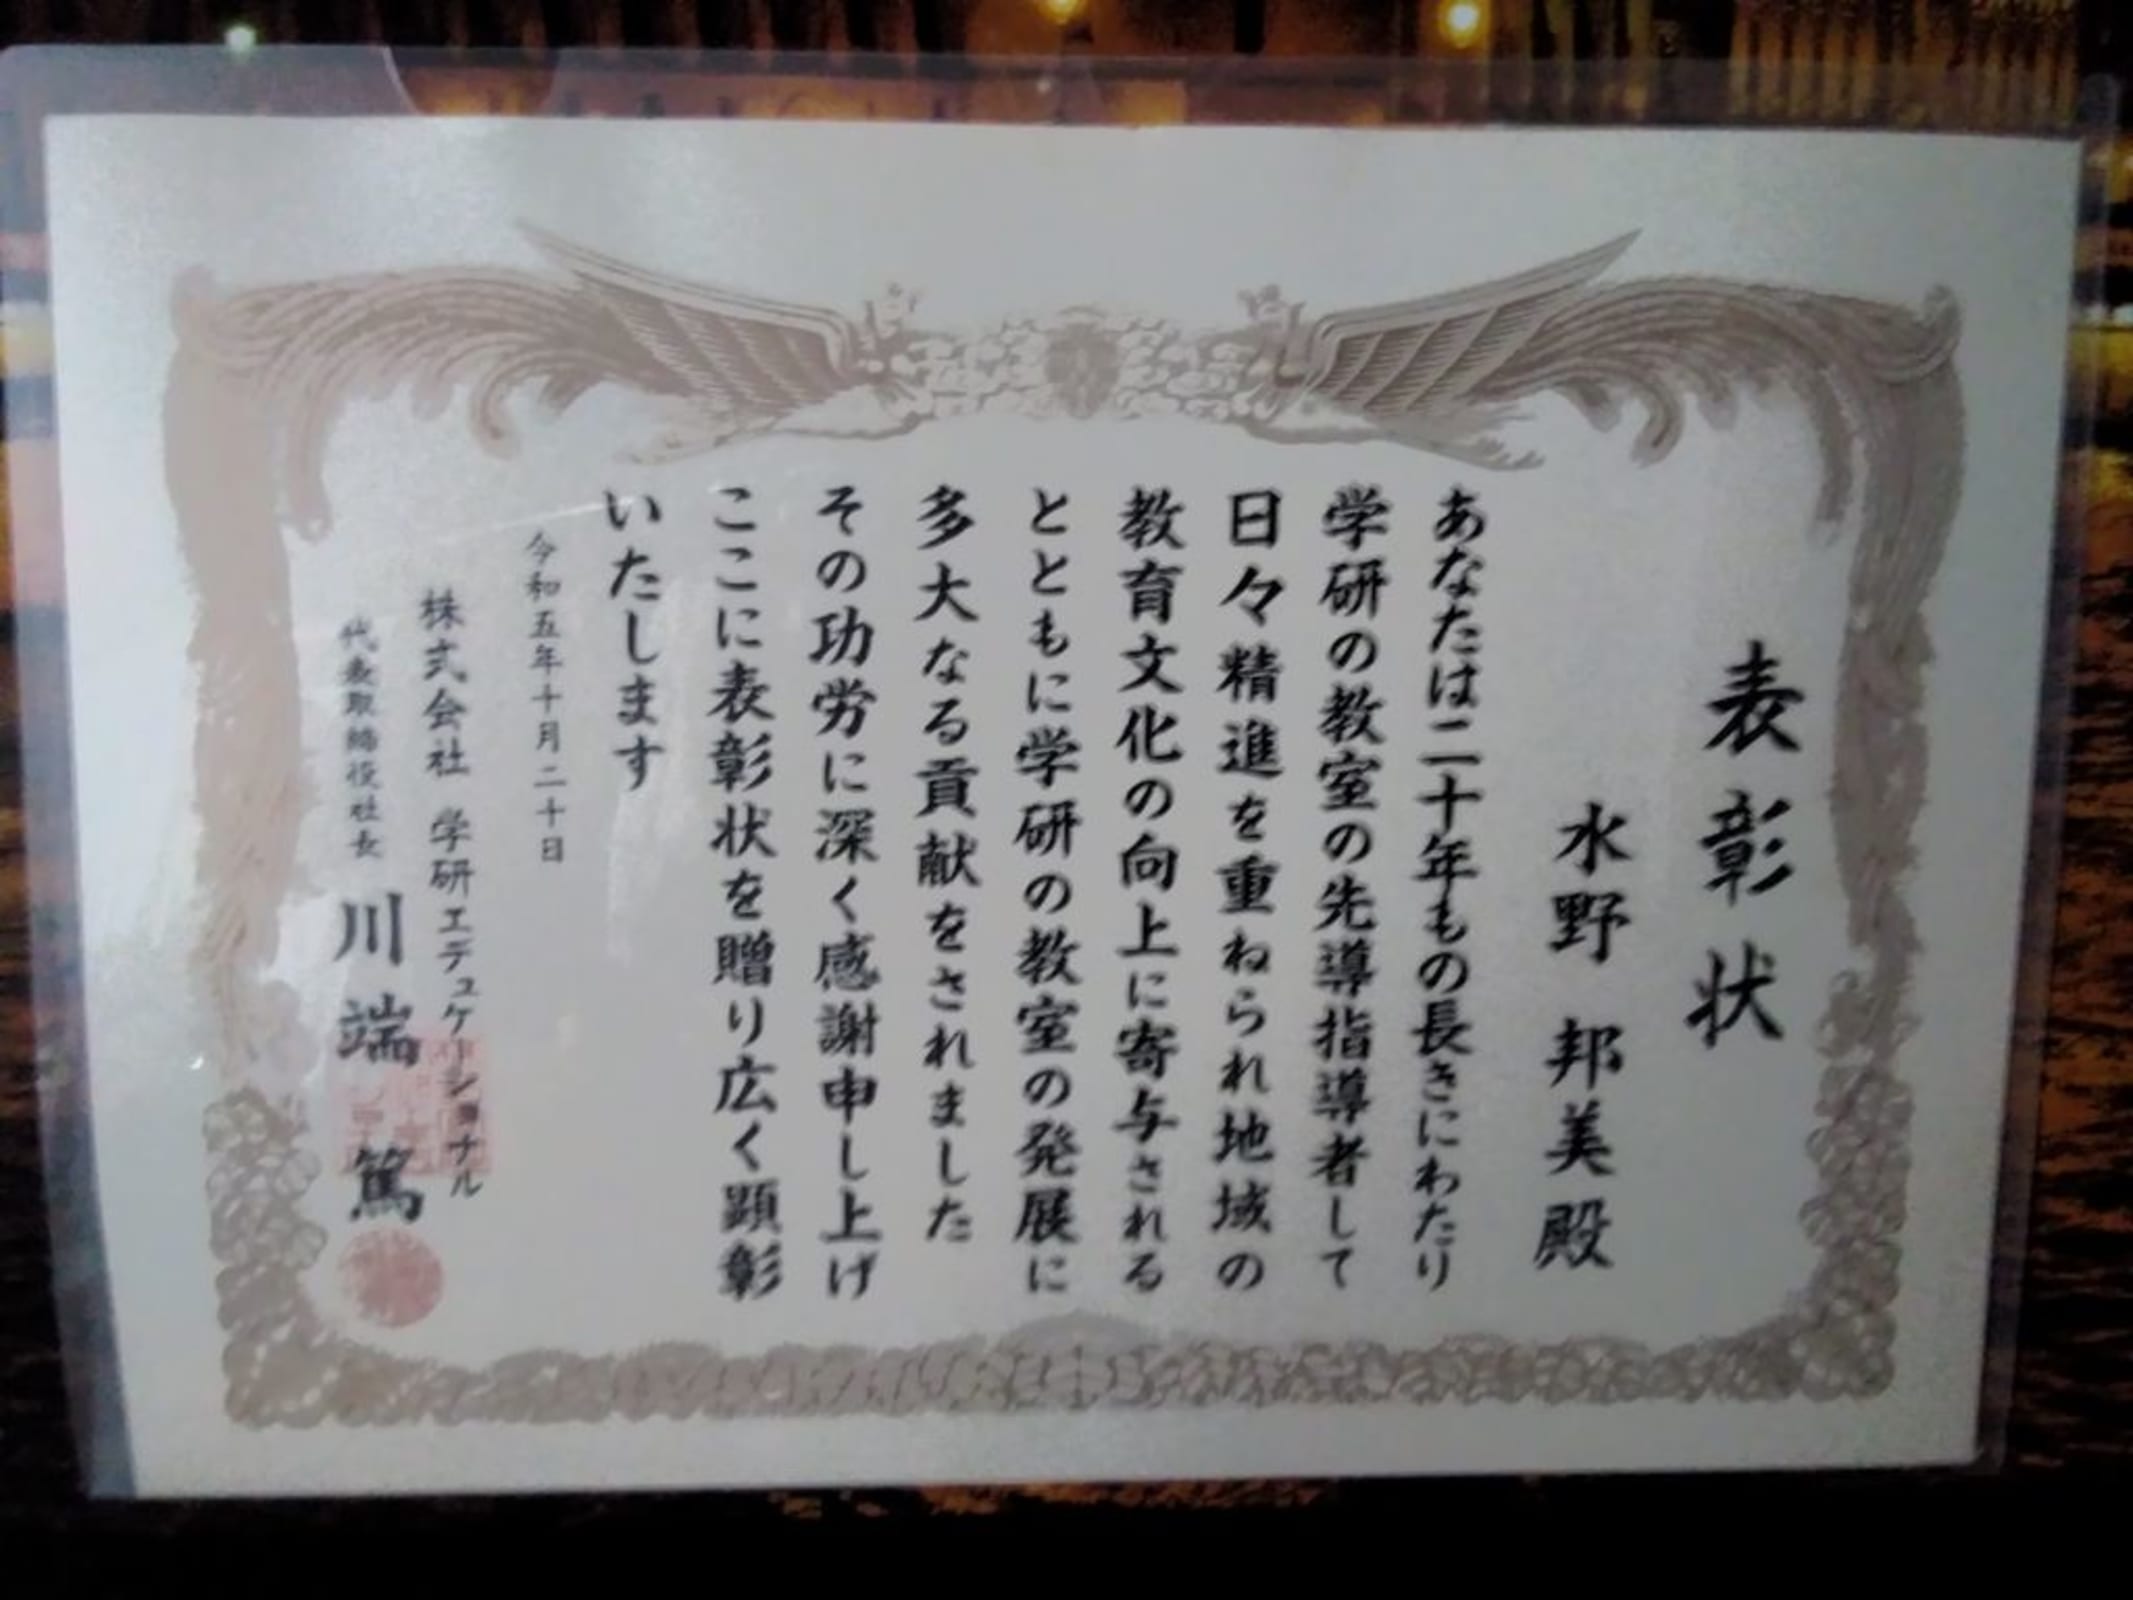 表彰状
水野 邦美 殿
あなたは二十年もの長きにわたり
学研の教室の先導指導者して
日々精進を重ねられ地域の
教育文化の向上に寄与される
とともに学研の教室の発展に
多大なる貢献をされました
その功労に深く感謝申し上げ
ここに表彰状を贈り広く顕彰
いたします
令和五年十月二十日
株式会社 学研エデュケーショナル
代表取締役社長 川端 篤